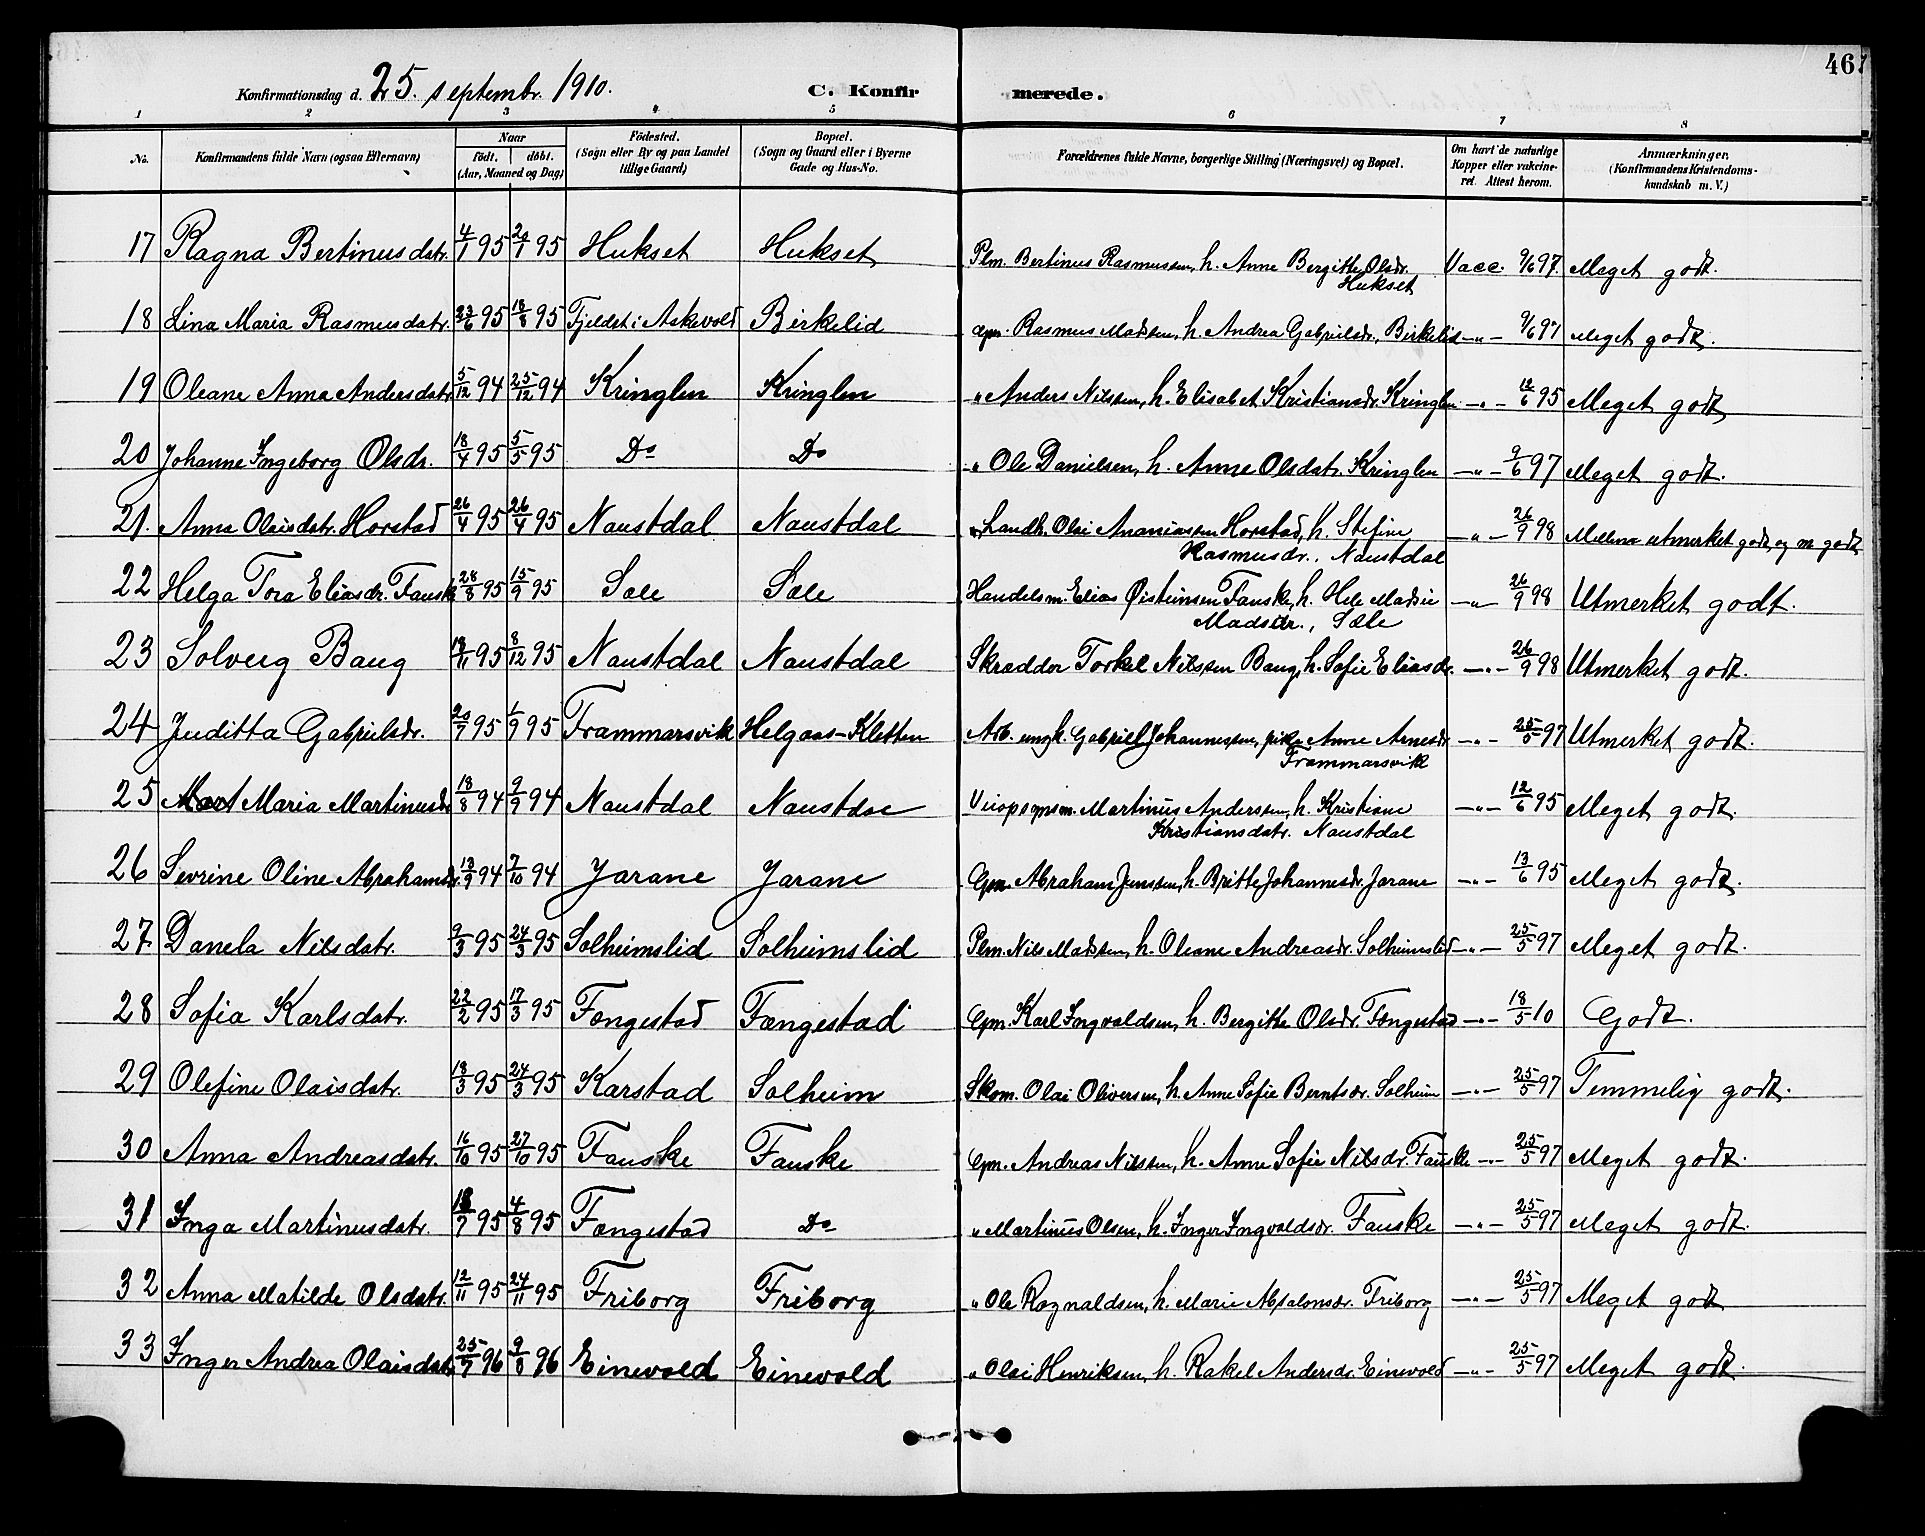 46
Konfirmationsdag d. 25. septembr. 1910. C. Konfirmerede.
1 2 3 4 5 6 7 8
No. Konfirmandens fulde Navn (ogsaa Efternavn) Naar födt. döbt. (Aar, Maaned og Dag) Födested. (Sogn eller By og paa Landet tillige Gaard) Bopæl. (Sogn og Gaard eller i Byerne Gade og Hus-No. Forældrenes fulde Navne, borgerlige Stilling (Næringsvei) og Bopæl. Om havt de naturlige Kopper eller vakcineret. Attest herom. Anmærkninger. (Konfirmandens Kristendomskundskab m. V.)
17 Ragna Bertinusdatr. 4/1 95 20/1 95 Hukset Hukset Plm. Bertinus Rasmussen, h. Anne Bergithe Olsdr. Hukset Vacc. 9/6 97 Meget godt.
18 Lina Maria Rasmusdatr. 23/6 95 18/8 95 Fjeldet i Askevold Birkelid Gm. Rasmus Madssen, h. Andrea Gabrielsdr., Birkelid -"- 9/6 97 Meget godt.
19 Oleane Anna Andersdatr. 5/12 94 25/12 94 Kringlen Kringlen " Anders Nilssen, h. Elisabet Kristiansdr. Kringlen -"- 12/6 95 Meget godt
20 Johanne Ingeborg Olsdr. 18/4 95 5/5 95 Do Do " Ole Danielsen, h. Anne Olsdatr. Kringlen -"- 9/6 97 Meget godt.
21. Anna Olaisdatr. Horstad 26/4 95 26/4 95 Naustdal Naustdal Landh. Olai Ananiassen Horstad, h. Stefine Rasmusdr., Naustdal -"- 26/9 98 Mellem utmerket godt og m godt
22 Helga Tora Eliasdr. Fauske 28/8 95 15/9 95 Sæle Sæle Handelsm. Elias Øisteinsen Fauske, h. Hele Madsie Madsdr., Sæle -"- 26/9 98 Utmerket godt.
23 Solveig Baug 18/11 95 8/12 95 Naustdal Naustdal Skrædder Torkel Nilssen Baug, h. Sofie Eliasdr. -"- 26/9 98 Utmerket godt.
24 Juditta Gabrielsdr. 20/7 95 1/9 95 Frammarsvik Helgaas-Kletten Arb. ungk. Gabriel Johannessen, pike Anne Arnesdr Frammarsvik -"- 25/5 97 Utmerket godt.
25 Maria Martinusdr 18/8 94 9/9 94 Naustdal Naustdal Martinus Anderssen, h. Kristiane Kristiansdatr. Naustdal -"- 12/6 95 Meget godt.
26 Sevrine Oline Abrahamsdr. 13/9 94 7/10 94 Jarane Jarane Gm. Abraham Jenssen, h. Britte Johannesdr. Jarane -"- 13/6 95 Meget godt.
27 Danela Nilsdatr. 9/3 95 24/3 95 Solheimslid Solheimslid Plm. Nils Madssen, h. Oleane Andreasdr. Solheimslid -"- 25/5 97 Meget godt.
28 Sofia Karlsdatr. 22/2 95 17/3 95 Fængestad Fængestad Gm. Karl Ingvaldsen, h. Bergithe Olsdr. Fængestad -"- 18/5 10 Godt.
29 Olefine Olaisdatr. 13/3 95 24/3 95 Karstad Solheim Skom. Olai Oliversen, h. Anne Sofie Berntsdr. Solheim -"- 25/5 97 Temmelig godt.
30 Anna Andreasdatr. 16/10 95 27/10 95 Fauske Fauske Gm. Andreas Nilssen, h. Anne Sofie Nilsdr. Fauske -"- 25/5 97 Meget godt.
31 Inga Martinusdatr. 18/7 95 4/8 95 Fængestad Do " Martinus Olsen, h. Inger Ingvaldsdr. Fauske -"- 25/5 97 Meget godt.
32 Anna Matilde Olsdatr. 12/11 95 24/11 95 Friborg Friborg " Ole Ragnaldsen, h. Marie Absalonsdr. Friborg -"- 25/5 97 Meget godt
33 Inger Andrea Olaisdatr. 25/7 96 9/8 96 Einevold Einevold " Olai Henriksen, h. Rakel Andersdr. Einevold -"- 25/5 97 Meget godt.